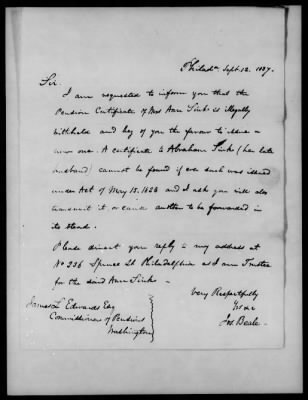 Philada. Sept. 12. 1837.
Sir.
I am requested to inform you that the
Pension Certificate of Mrs Ann Sink is illegally
withheld and beg of you the favour to issue a
new one. A certificate to Abraham Sink (her late
husband) cannot be found if ever such was issued
under Act of May 15. 1828 and I ask you will also
transmit it, or cause another to be forwarded in
its stead.
Please direct your reply to my address at
No 236 Spruce St Philadelphia as I am Trustee
for the said Ann Sink -
Very Respectfully
Yrs &c
Jos. Beale.
James L Edwards Esq
Commissioner of Pensions
Washington